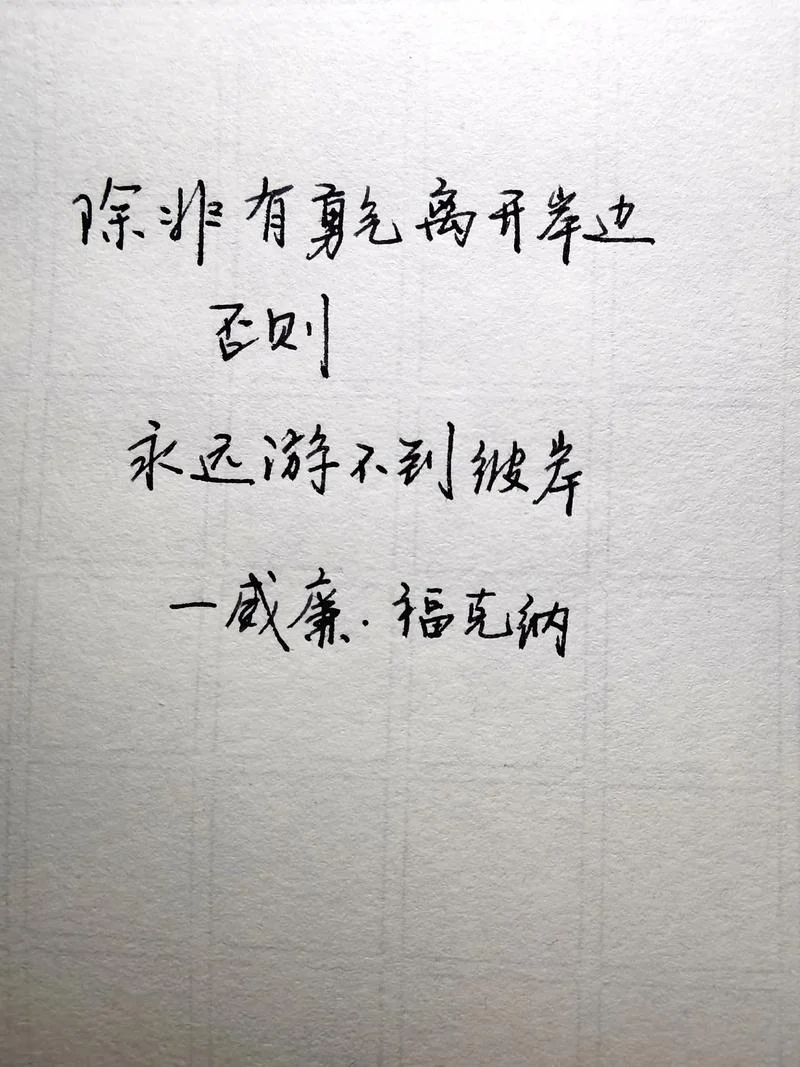 除非有勇气离开岸边
否则
永远游不到彼岸
—威廉·福克纳